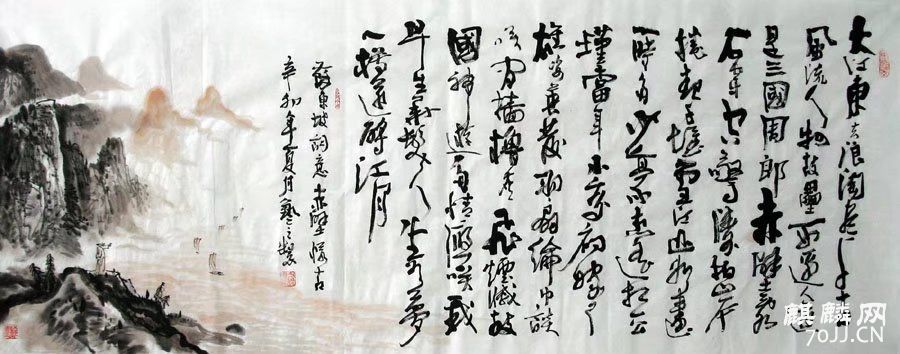 大江東去浪淘尽千古
風流人物故壘西邊人道
是三國周郎赤壁亂
石穿空驚濤拍岸
捲起千堆雪江山如畫
一時多少豪杰遙想公
瑾當年小喬初嫁了
雄姿英發羽扇綸巾談
笑間檣櫓灰飛煙滅故
國神遊多情應笑我
早生華髮人生如夢
一樽還酹江月
東坡詞意赤壁懷古
辛卯年夏月
麒麟网
70JJ.CN